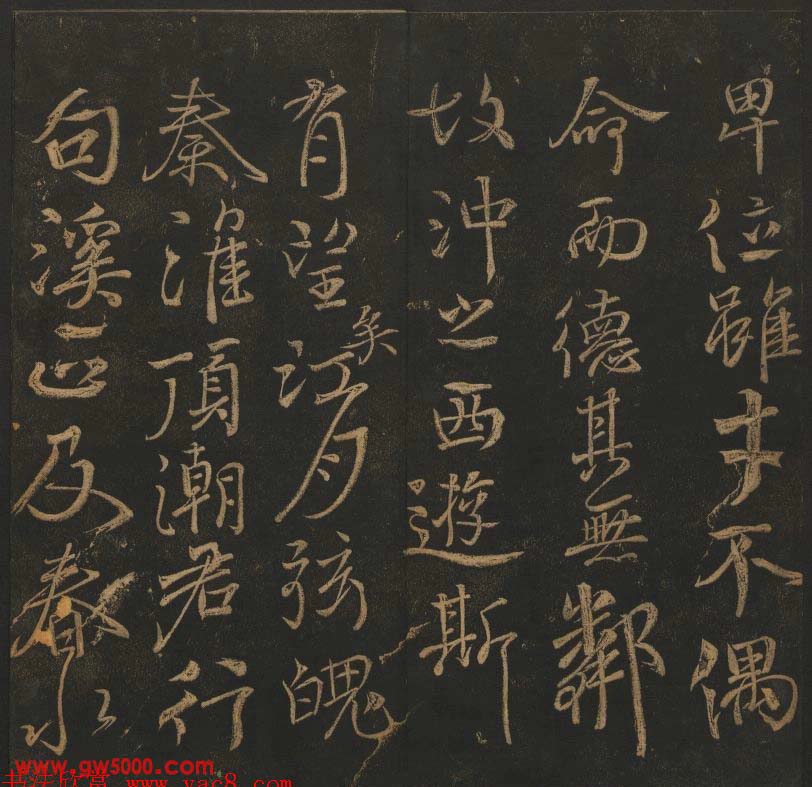 卑位雖才不偶
命而德其無鄰
故沖之西遊斯
有望矣江月弦魄
秦淮頂潮君行
句溪正及春水
www.gw5000.com
书法欣赏 www.yac8.com